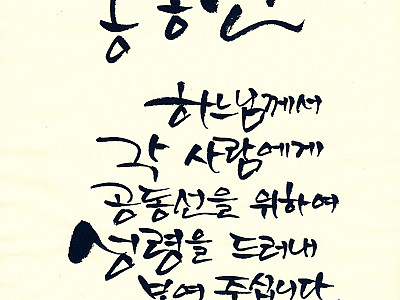 공동선
하느님께서
각 사람에게
공동선을 위하여
성령을 드러내
보여 주십니다.